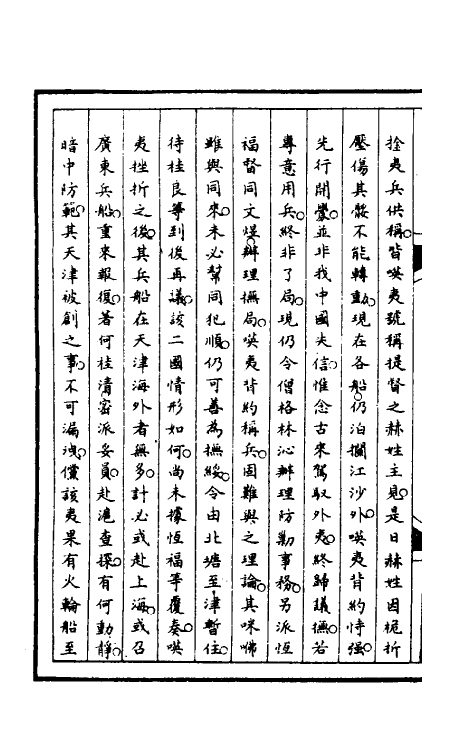 拴夷兵供稱。皆𠸄夷號稱提督之赫姓主見。是日赫姓因桅折
壓傷其骽不能轉動。現在各船。仍泊攔江沙外。𠸄夷背約恃强
先行開釁。並非我中國失信。惟念古來駕馭外夷。終歸議撫。若
專意用兵。終非了局。現仍令僧格林沁辦理防勦事務。另派恆
福督同文煜。辦理撫局。𠸄夷背約稱兵。固難與之理論。其咪咈
雖與同來。未必幫同犯順。仍可善為撫綏。令由北塘至津暫住。
待桂良等到後再議。該二國情形如何。尚未據恆福等覆奏。𠸄
夷挫折之後。其兵船在天津海外者無多。計必或赴上海。或召
廣東兵船。重來報復。著何桂清密派妥員。赴滬查探。有何動靜。
暗中防範。其天津被創之事。不可漏洩。儻該夷果有火輪船至